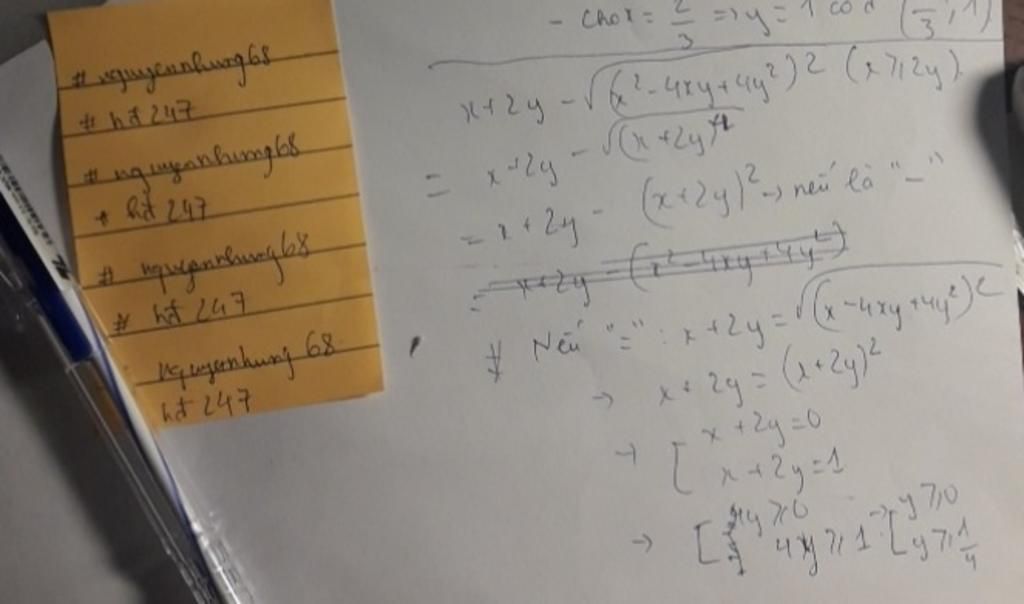 # nguyennhung68
# hđ 247
# nguyennhung68
# hđ 247
# nguyennhung68
# hđ 247
nguyennhung 68
hđ 247
- Cho x = 2/3 => y = 1 có d (/3, 1)
x + 2y - √(x² - 4xy + 4y²)² (x ≥ 2y)
= x + 2y - √(x + 2y)⁴
= x + 2y - (x + 2y)² → nếu là "-"
= x + 2y - (x² - 4xy + 4y²)
# Nếu "=": x + 2y = √(x - 4xy + 4y²)²
→ x + 2y = (x + 2y)²
→ [ x + 2y = 0
x + 2y = 1
→ [ 4y ≥ 0 → [ y ≥ 0
4y ≥ 1 y ≥ 1/4